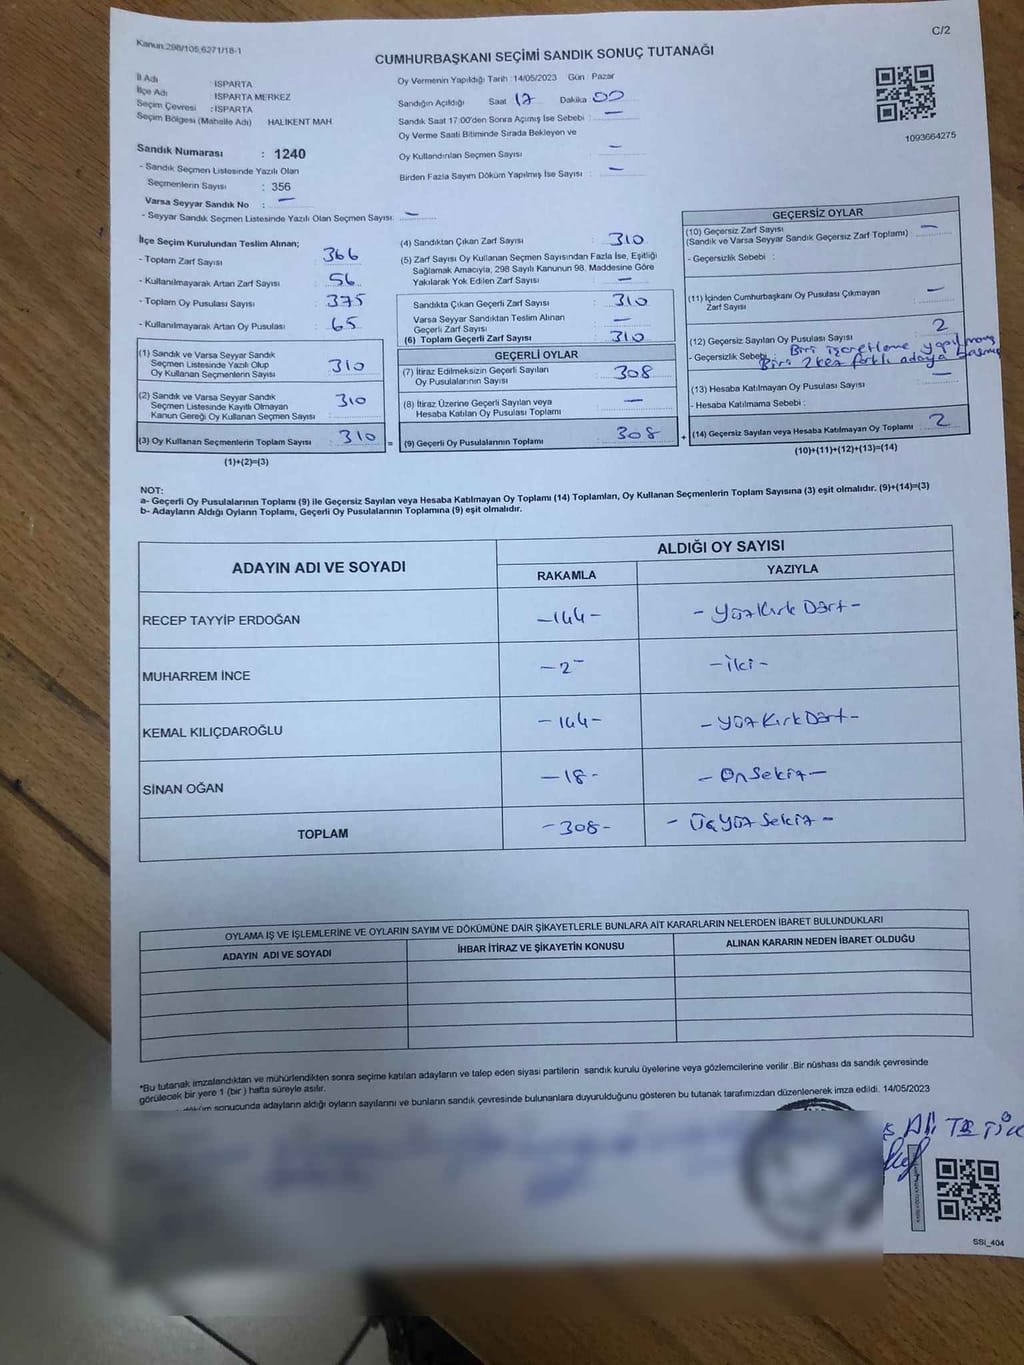 Kanun:298/105,6271/18-1
C/2
CUMHURBAŞKANI SEÇİMİ SANDIK SONUÇ TUTANAĞI
İl Adı ISPARTA
İlçe Adı ISPARTA MERKEZ
Seçim Çevresi : ISPARTA
Seçim Bölgesi (Mahalle Adı) HALIKENT MAH.
Sandık Numarası : 1240
- Sandık Seçmen Listesinde Yazılı Olan
Seçmenlerin Sayısı : 356
Varsa Seyyar Sandık No : —
- Seyyar Sandık Seçmen Listesinde Yazılı Olan Seçmen Sayısı: —
Oy Vermenin Yapıldığı Tarih : 14/05/2023 Gün : Pazar
Sandığın Açıldığı Saat 17 Dakika 00
Sandık Saat 17:00'den Sonra Açımış İse Sebebi : —
Oy Verme Saati Bitiminde Sırada Bekleyen ve
Oy Kullandırılan Seçmen Sayısı —
Birden Fazla Sayım Döküm Yapılmış İse Sayısı : —
1093664275
İlçe Seçim Kurulundan Teslim Alınan;
- Toplam Zarf Sayısı : 366
- Kullanılmayarak Artan Zarf Sayısı : 56
- Toplam Oy Pusulası Sayısı : 375
- Kullanılmayarak Artan Oy Pusulası : 65
(1) Sandık ve Varsa Seyyar Sandık
Seçmen Listesinde Yazılı Olup
Oy Kullanan Seçmenlerin Sayısı : 310
(2) Sandık ve Varsa Seyyar Sandık
Seçmen Listesinde Kayıtlı Olmayan
Kanun Gereği Oy Kullanan Seçmen Sayısı : 310
(3) Oy Kullanan Seçmenlerin Toplam Sayısı : 310 =
(1)+(2)=(3)
(4) Sandıktan Çıkan Zarf Sayısı : 310
(5) Zarf Sayısı Oy Kullanan Seçmen Sayısından Fazla İse, Eşitliği
Sağlamak Amacıyla, 298 Sayılı Kanunun 98. Maddesine Göre
Yakılarak Yok Edilen Zarf Sayısı : —
Sandıkta Çıkan Geçerli Zarf Sayısı : 310
Varsa Seyyar Sandıktan Teslim Alınan
Geçerli Zarf Sayısı : —
(6) Toplam Geçerli Zarf Sayısı : 310
GEÇERLİ OYLAR
(7) İtiraz Edilmeksizin Geçerli Sayılan
Oy Pusulalarının Sayısı : 308
(8) İtiraz Üzerine Geçerli Sayılan veya
Hesaba Katılan Oy Pusulası Toplamı : —
(9) Geçerli Oy Pusulalarının Toplamı : 308 +
GEÇERSİZ OYLAR
(10) Geçersiz Zarf Sayısı
(Sandık ve Varsa Seyyar Sandık Geçersiz Zarf Toplamı) : —
- Geçersizlik Sebebi :
(11) İçinden Cumhurbaşkanı Oy Pusulası Çıkmayan
Zarf Sayısı : —
(12) Geçersiz Sayılan Oy Pusulası Sayısı : 2
- Geçersizlik Sebebi : Biri işaretleme yapılmamış
Biri 2 kez farklı adaya basmış
(13) Hesaba Katılmayan Oy Pusulası Sayısı : —
- Hesaba Katılmama Sebebi :
(14) Geçersiz Sayılan veya Hesaba Katılmayan Oy Toplamı : 2
(10)+(11)+(12)+(13)=(14)
NOT:
a- Geçerli Oy Pusulalarının Toplamı (9) ile Geçersiz Sayılan veya Hesaba Katılmayan Oy Toplamı (14) Toplamları, Oy Kullanan Seçmenlerin Toplam Sayısına (3) eşit olmalıdır. (9)+(14)=(3)
b- Adayların Aldığı Oyların Toplamı, Geçerli Oy Pusulalarının Toplamına (9) eşit olmalıdır.
ADAYIN ADI VE SOYADI ALDIĞI OY SAYISI
RAKAMLA YAZIYLA
RECEP TAYYİP ERDOĞAN -144- -Yüz Kırk Dört-
MUHARREM İNCE -2- -İki-
KEMAL KILIÇDAROĞLU -144- -Yüz Kırk Dört-
SİNAN OĞAN -18- -On Sekiz-
TOPLAM -308- -Üç Yüz Sekiz-
OYLAMA İŞ VE İŞLEMLERİNE VE OYLARIN SAYIM VE DÖKÜMÜNE DAİR ŞİKAYETLERLE BUNLARA AİT KARARLARIN NELERDEN İBARET BULUNDUKLARI
ADAYIN ADI VE SOYADI İHBAR İTİRAZ VE ŞİKAYETİN KONUSU ALINAN KARARIN NEDEN İBARET OLDUĞU
*Bu tutanak imzalandıktan ve mühürlendikten sonra seçime katılan adayların ve talep eden siyasi partilerin sandık kurulu üyelerine veya gözlemcilerine verilir .Bir nüshası da sandık çevresinde
görülecek bir yere 1 (bir ) hafta süreyle asılır.
döküm sonucunda adayların aldığı oyların sayılarını ve bunların sandık çevresinde bulunanlara duyurulduğunu gösteren bu tutanak tarafımızdan düzenlenerek imza edildi. 14/05/2023
SSİ_404